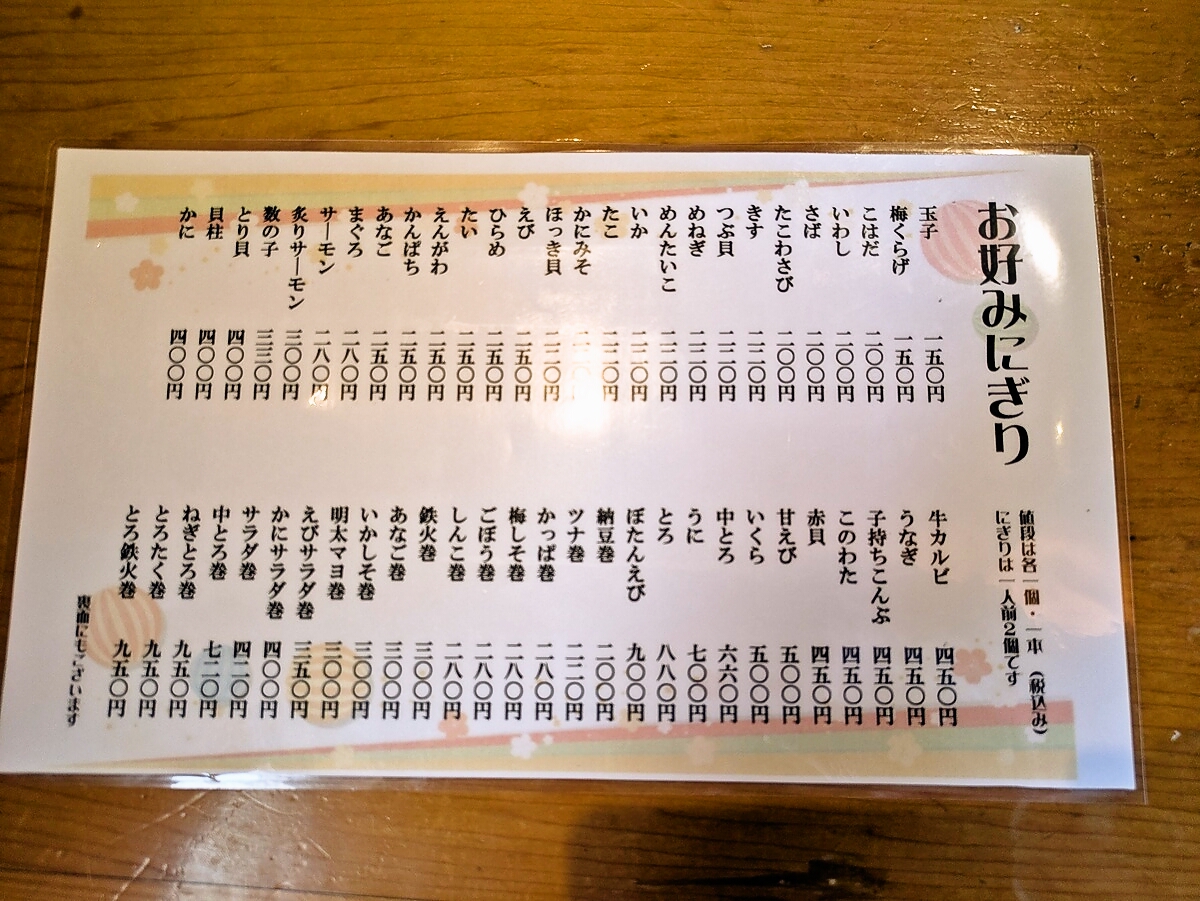 お好みにぎり
値段は各一個・一本 (税込み)
にぎりは一人前2個です
玉子 一五〇円
梅くらげ 一五〇円
こはだ 二〇〇円
いわし 二〇〇円
さば 二〇〇円
たこわさび 二〇〇円
きす 二二〇円
つぶ貝 二二〇円
めねぎ 二二〇円
めんたいこ 二二〇円
いか 二二〇円
たこ 二二〇円
かにみそ
ほっき貝 二二〇円
えび 二五〇円
ひらめ 二五〇円
たい 二五〇円
えんがわ 二五〇円
かんぱち 二五〇円
あなご 二五〇円
まぐろ 二八〇円
サーモン 二八〇円
炙りサーモン 三〇〇円
数の子 三三〇円
とり貝 四〇〇円
貝柱 四〇〇円
かに 四〇〇円
牛カルビ 四五〇円
うなぎ 四五〇円
子持ちこんぶ 四五〇円
このわた 四五〇円
赤貝 四五〇円
甘えび 五〇〇円
いくら 五〇〇円
中とろ 六六〇円
うに 七〇〇円
とろ 八八〇円
ぼたんえび 九〇〇円
納豆巻 二〇〇円
ツナ巻 二二〇円
かっぱ巻 二八〇円
梅しそ巻 二八〇円
ごぼう巻 二八〇円
しんこ巻 二八〇円
鉄火巻 三〇〇円
あなご巻 三〇〇円
いかしそ巻 三〇〇円
明太マヨ巻 三〇〇円
えびサラダ巻 三五〇円
かにサラダ巻 四〇〇円
サラダ巻 四二〇円
中とろ巻 七二〇円
ねぎとろ巻 九五〇円
とろたく巻 九五〇円
とろ鉄火巻 九五〇円
裏面にもございます